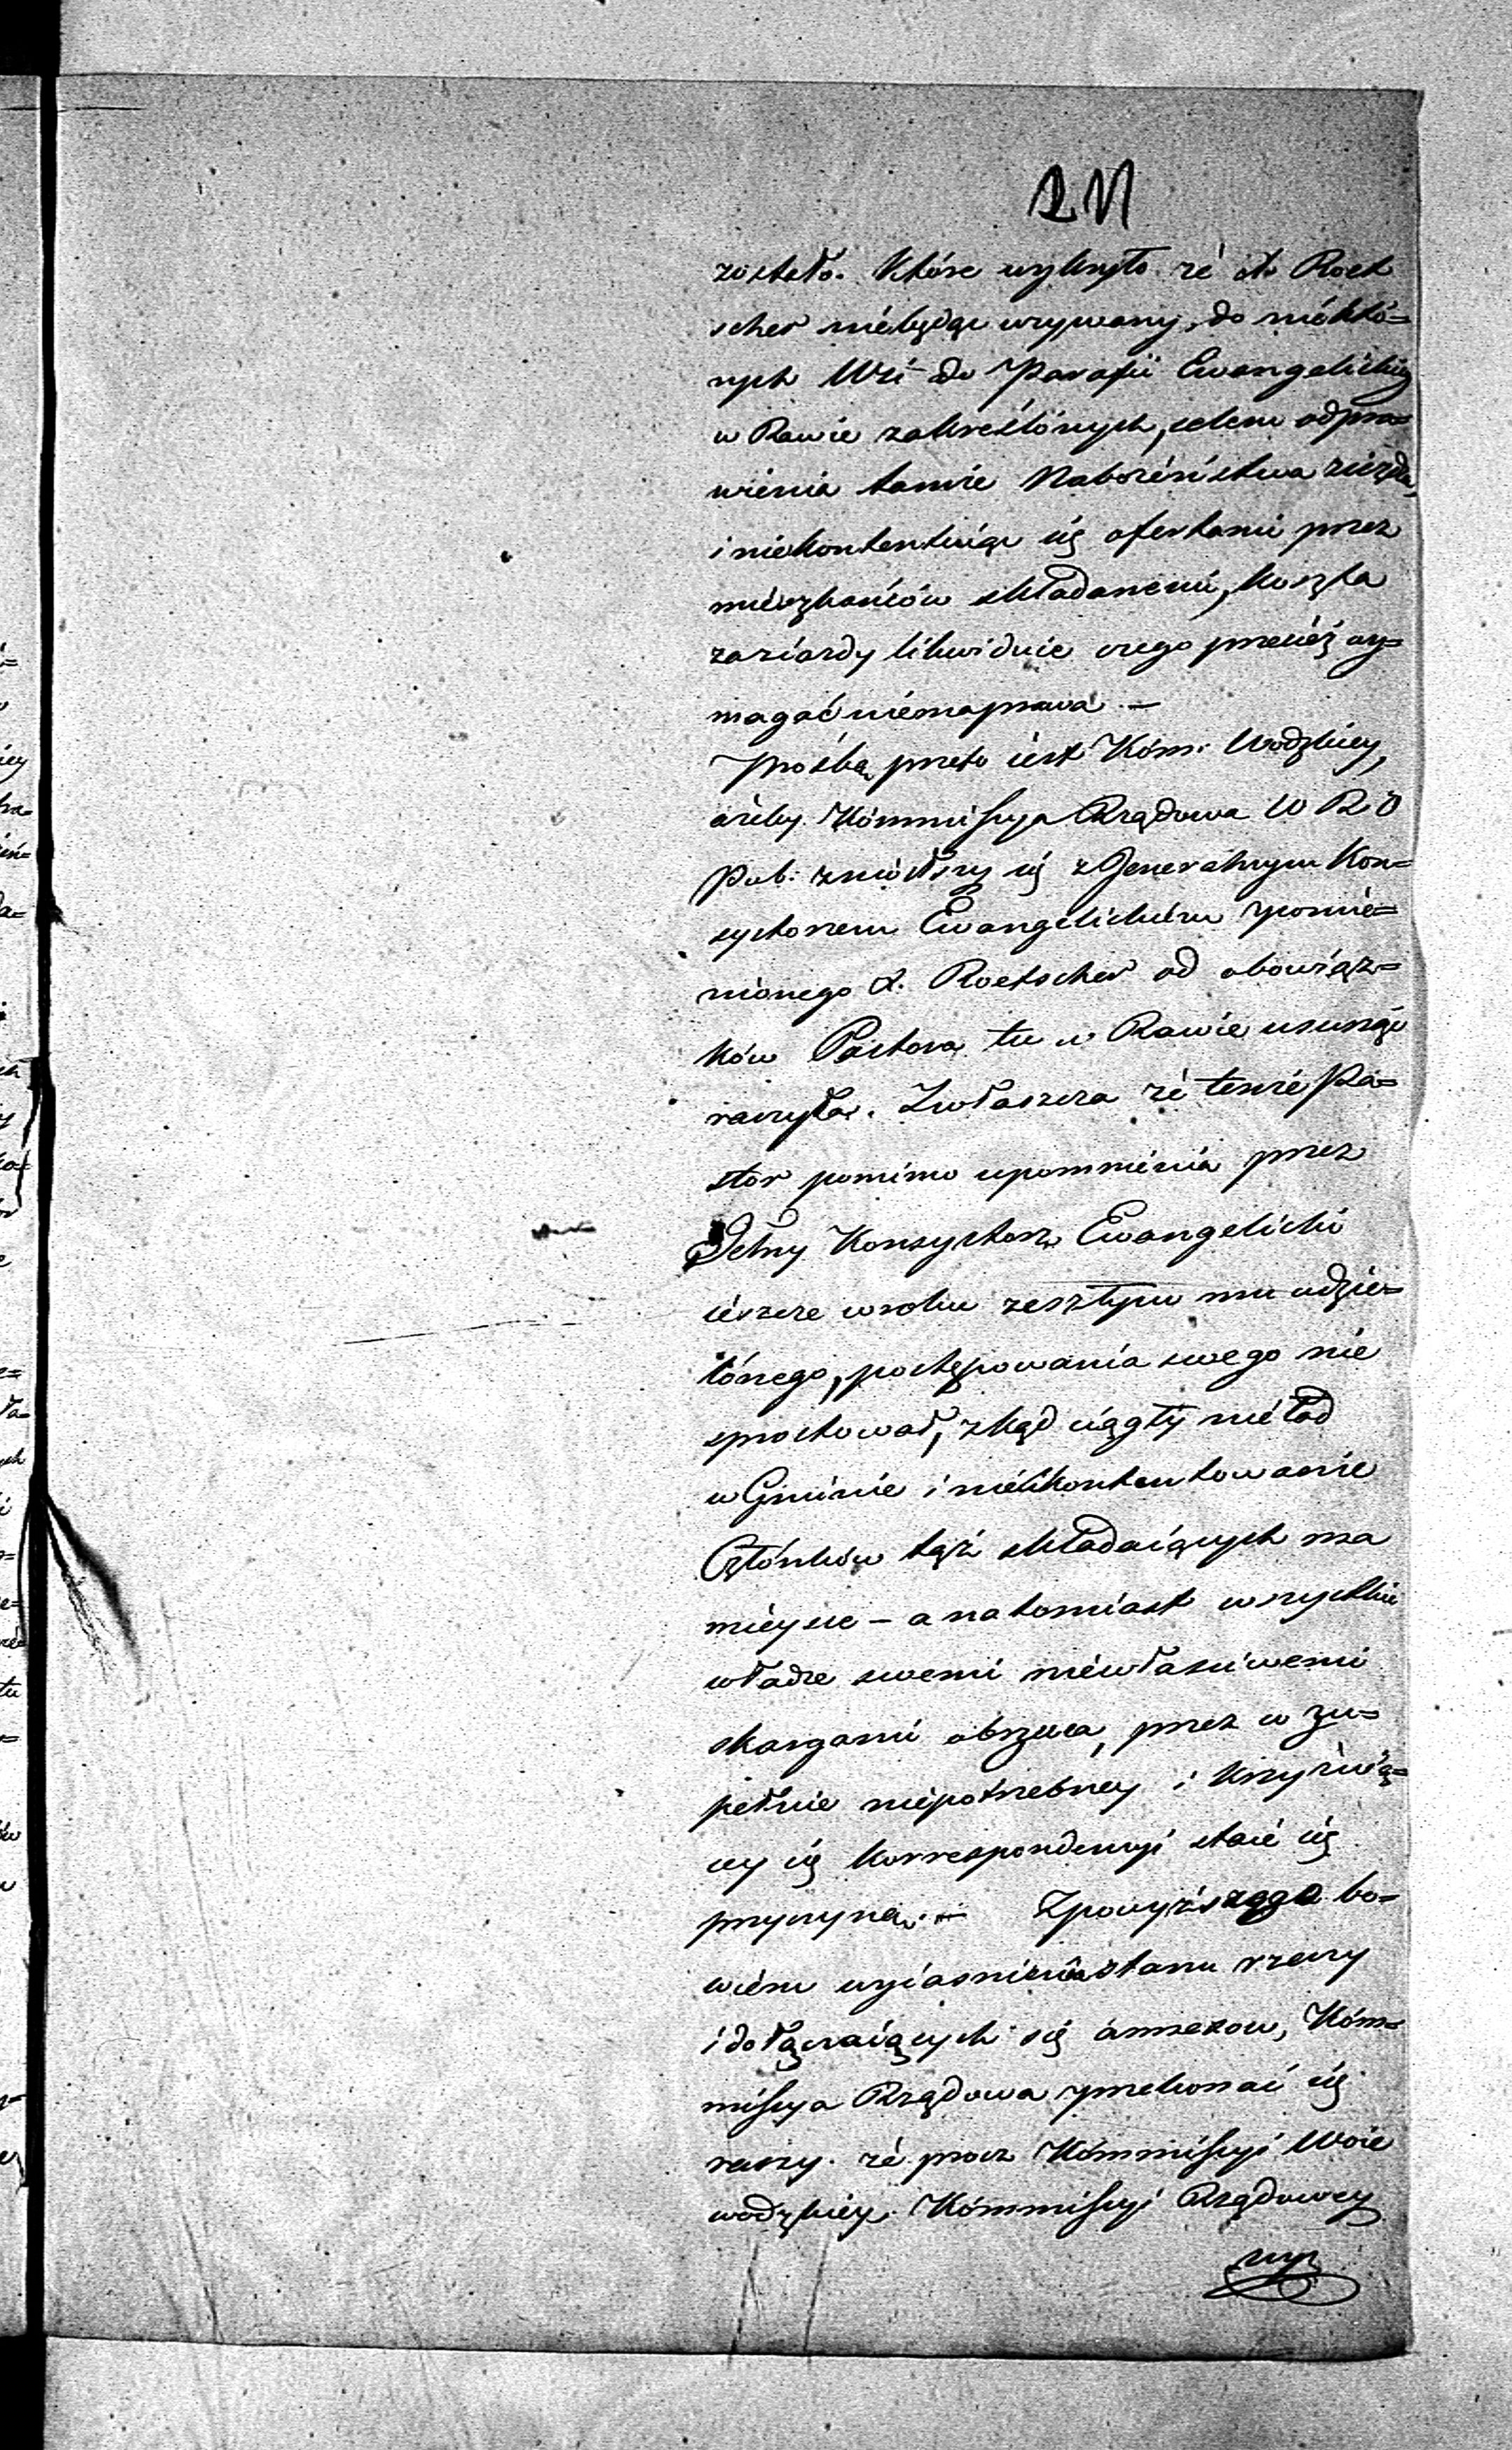 zostało. Które wykryto że X. Roet
scher niebędąc wzywany, do niektó=
rych Wsi do Parafii Ewangelickiey
w Rawie zakreślonych, celem odpra=
wienia tamże Nabożeństwa zieżdża,
i niekontentuiąc się ofertami przez
mieszkańców składanemi, koszta
zaziazdy likwiduie czego przecież wy=
magać niemaprawa. —
Prośbą przeto iest Kom: Wodzkiey,
ażeby Kommissya Rządowa W R i O
Pub: zniosłszy się z Generalnym Kon=
systorzem Ewangelickiem rzpomie=
nionego X. Roetscher od obowiąz=
ków Pastora tu w Rawie usunąć
raczyła. Zwłaszcza że tenże Pa=
stor pomimo upomnienia przez
Jełny Konsystorz Ewangelicki
ieszcze wroku zeszłym mu udzie=
lónego, postępowania swego nie
sprostował, zkąd ciągły niéład
w Gminie i nieukontentowanie
Członków tąż składaiących ma
mieysce — a natomiast wszystkie
władze swemi niewłaściwemi
skargami obrzuca, przez w zu=
pełnie niepotrzebney i krzyżuią=
cey się korrespondencyi staie się
przyczyną. — Zpowyższego bo=
wiem wyiaśnienia stanu rzeczy
i dołączaiących się annexow, Kom=
missya Rządowa przekonać się
raczy. że procz Kommissyi Woie
wodzkiey. Kommissyi Rządowey